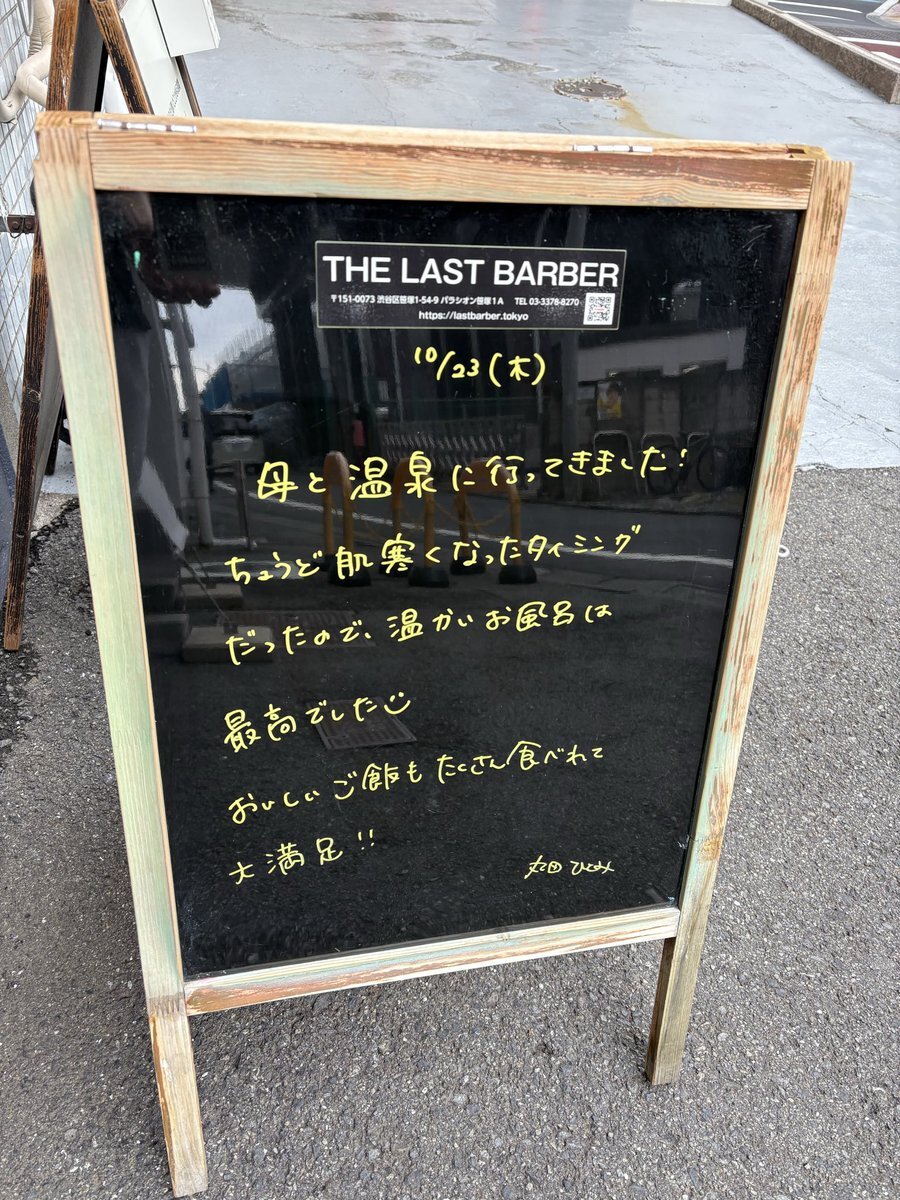 THE LAST BARBER
〒151-0073 渋谷区笹塚1-54-9 パラシオン笹塚1A TEL 03-3378-8270
https://lastbarber.tokyo
10/23(木)
母と温泉に行ってきました!
ちょうど肌寒くなったタイミング
だったので、温かいお風呂は
最高でした
おいしいご飯もたくさん食べれて
大満足!!
ひとみ